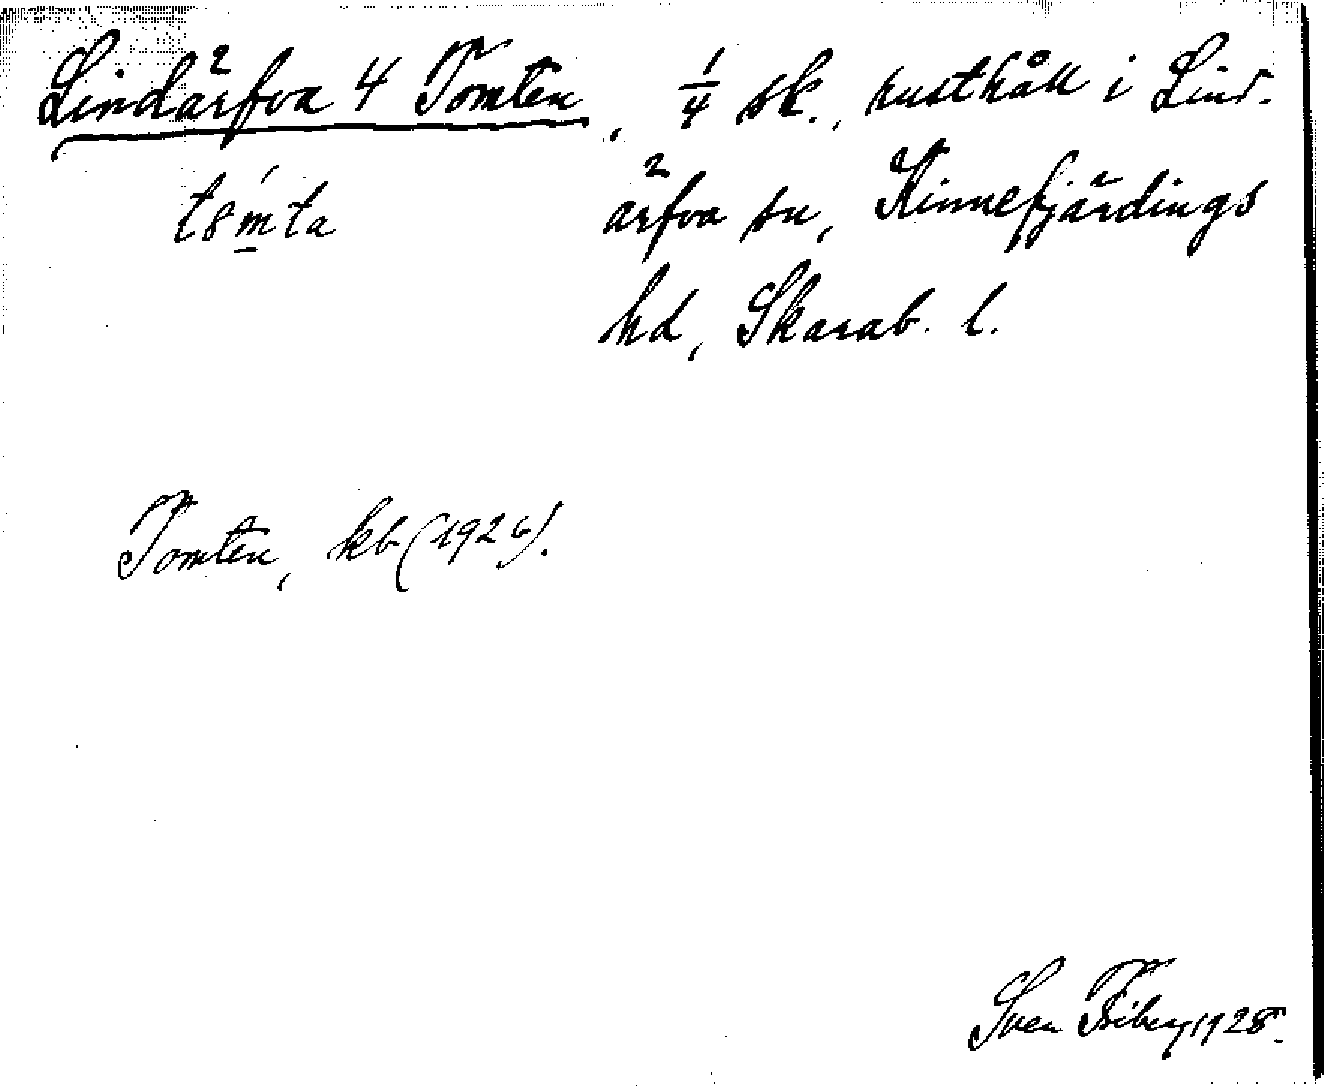 Lindärfva 4 Tomten, 1/4 sk., rusthåll i Lind-
ärfva sn, Kinnefjärdings
tómta
hd, Skarab. l.
Tomten, kb (1926).
Sven Friberg 1928.